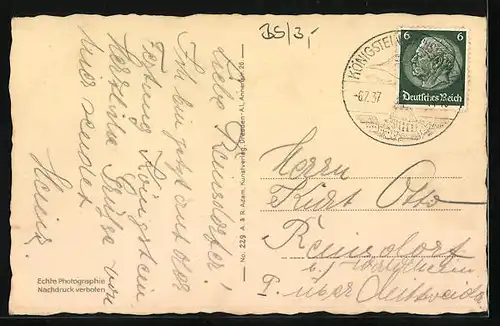 BS/3,-
KÖNIGSTEIN
-6.7.37
6 6
Deutsches Reich
Liebe Reinsdorfer!
Ich bin jetzt auf der
Festung Königstein.
Herzliche Grüße von
hier sendet
Heinz.
Echte Photographie
Nachdruck verboten
No. 229 A. & R. Adam, Kunstverlag, Dresden-A.1, Annenstr. 26
Herrn
Kurt Otto
Reinsdorf
b/ Waldheim
P. über